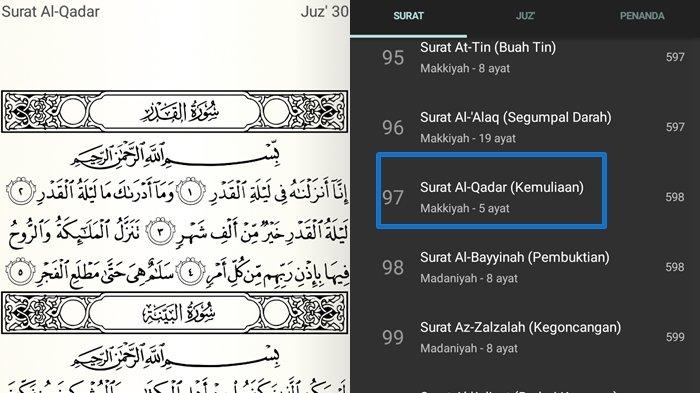 Surat Al-Qadar Juz' 30
سُورَةُ القَدْرِ
بِسْمِ اللَّهِ الرَّحْمَٰنِ الرَّحِيمِ
إِنَّا أَنزَلْنَٰهُ فِى لَيْلَةِ الْقَدْرِ ١ وَمَا أَدْرَىٰكَ مَا لَيْلَةُ الْقَدْرِ ٢
لَيْلَةُ الْقَدْرِ خَيْرٌ مِّنْ أَلْفِ شَهْرٍ ٣ تَنَزَّلُ الْمَلَٰٓئِكَةُ وَالرُّوحُ
فِيهَا بِإِذْنِ رَبِّهِم مِّن كُلِّ أَمْرٍ ٤ سَلَٰمٌ هِىَ حَتَّىٰ مَطْلَعِ الْفَجْرِ ٥
سُورَةُ البَيِّنَةِ
بِسْمِ اللَّهِ الرَّحْمَٰنِ الرَّحِيمِ
SURAT JUZ' PENANDA
95 Surat At-Tin (Buah Tin) 597
Makkiyah - 8 ayat
96 Surat Al-'Alaq (Segumpal Darah) 597
Makkiyah - 19 ayat
97 Surat Al-Qadar (Kemuliaan) 598
Makkiyah - 5 ayat
98 Surat Al-Bayyinah (Pembuktian) 598
Madaniyah - 8 ayat
99 Surat Az-Zalzalah (Kegoncangan) 599
Madaniyah - 8 ayat